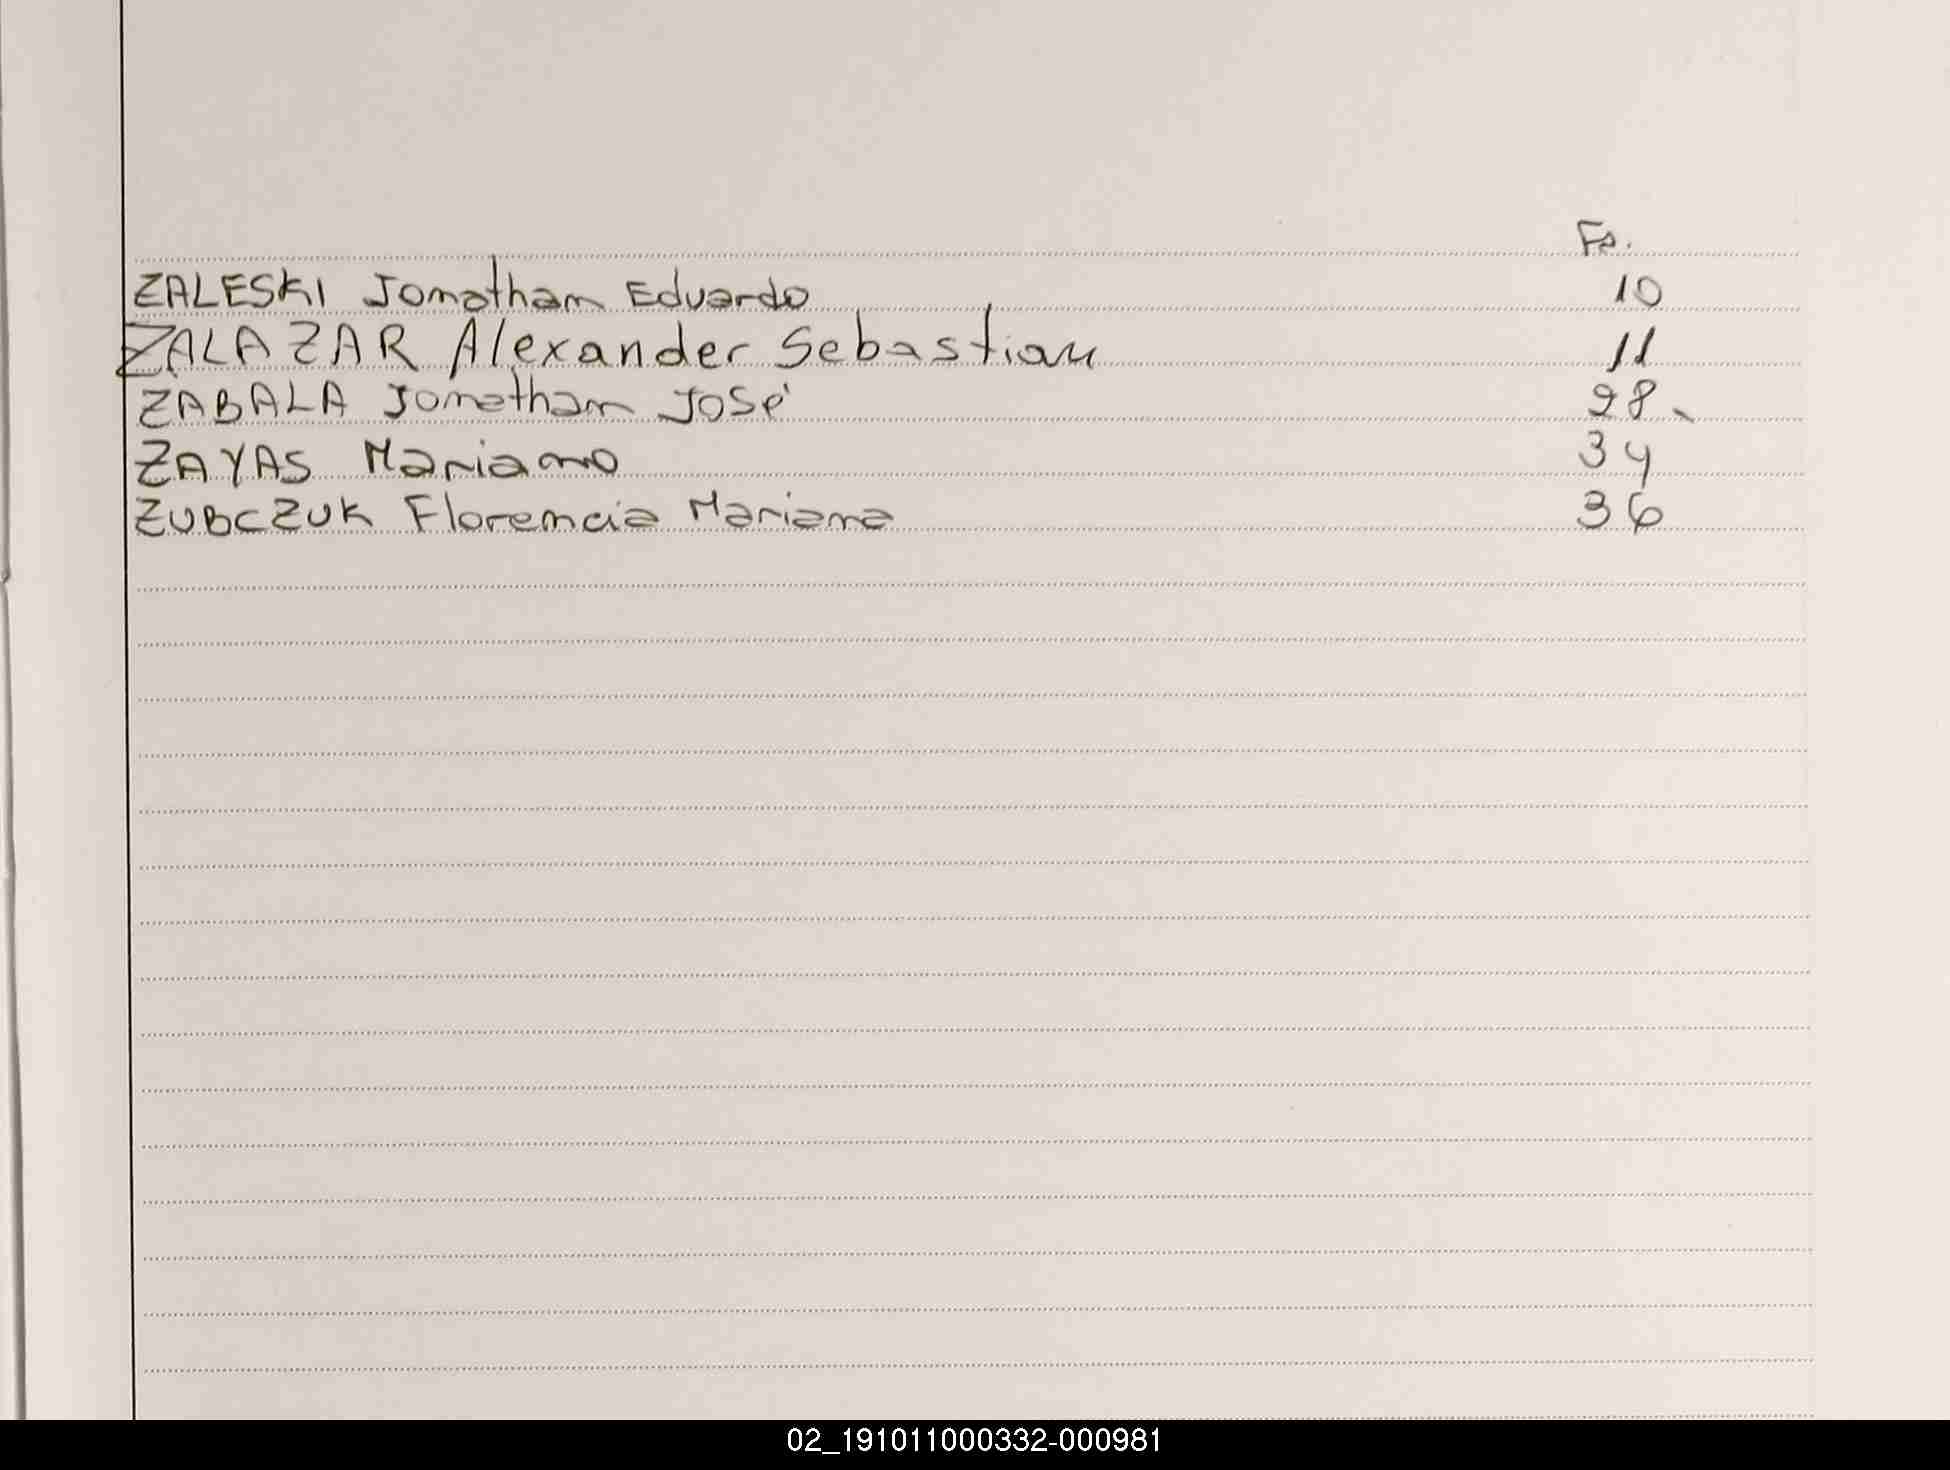 Fs.
ZALESKI Jonathan Eduardo 10
ZALAZAR Alexander Sebastian 11
ZABALA Jonathan José 28
ZAYAS Mariano 34
ZUBCZUK Florencia Mariana 36
02_191011000332-000981